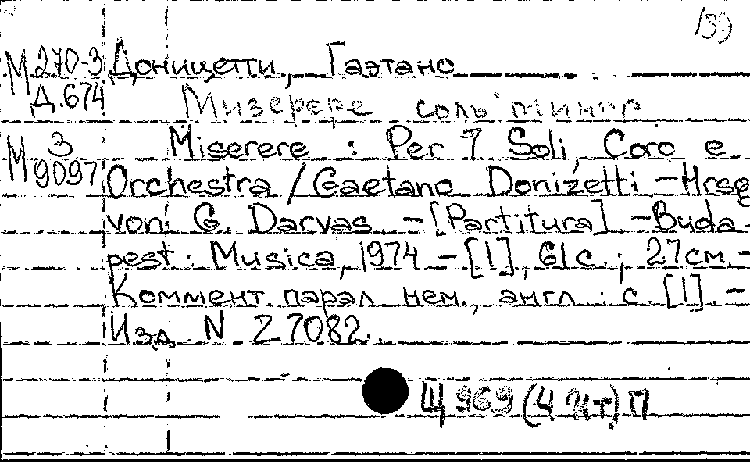 139
М 270-3 Доницетти, Гаэтано
Д.674 Мизерере соль минор
М 3 Miserere : Per 7 Soli, Coro e
9097 Orchestra / Gaetano Donizetti – Hrsg
von: G. Darvas. – [Partitura] – Buda-
pest : Musica, 1974 – [1], 61 с. ; 27см –
Коммент. парал нем., англ : с [1] –
Изд N Z 7082.
Щ 969 (4 Ит) П